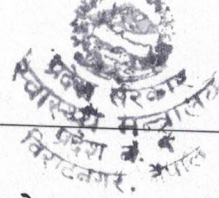 प्रदेश सरकार
स्वास्थ्य मन्त्रालय
प्रदेश नं. १
विराटनगर, नेपाल